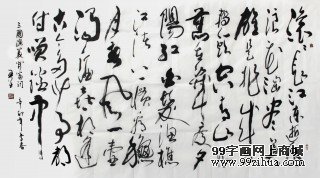 滚滚长江东逝
水浪花淘尽英
雄是非成败
转头空青山
依旧在几度夕
阳红白发渔樵
江渚上惯看秋
月春风一壶
浊酒喜相逢
古今多少事都
付笑谈中
三国演义开篇词
99字画网
www.99zihua.com